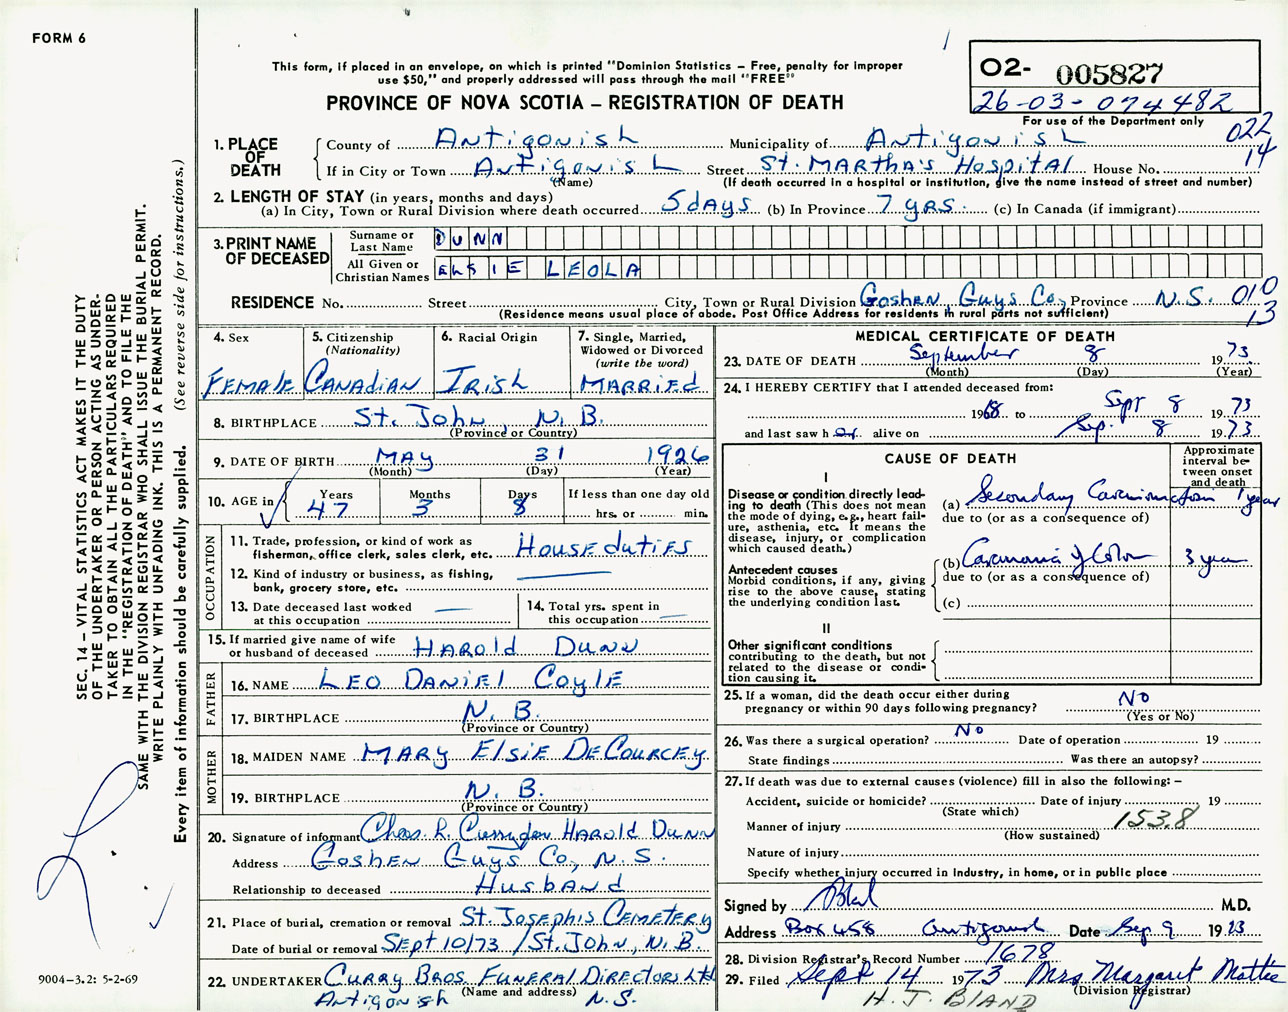 FORM 6
This form, if placed in an envelope, on which is printed "Dominion Statistics – Free, penalty for improper
use $50," and properly addressed will pass through the mail "FREE"
PROVINCE OF NOVA SCOTIA – REGISTRATION OF DEATH
O2- 005827
26-03-074482
For use of the Department only
022
14
1. PLACE OF DEATH
County of Antigonish Municipality of Antigonish
If in City or Town Antigonish Street St. Martha's Hospital House No.
(Name) (If death occurred in a hospital or institution, give the name instead of street and number)
2. LENGTH OF STAY (in years, months and days)
(a) In City, Town or Rural Division where death occurred 5 days (b) In Province 7 yrs. (c) In Canada (if immigrant)
3. PRINT NAME OF DECEASED
Surname or Last Name DUNN
All Given or Christian Names ELSIE LEOLA
RESIDENCE No. Street City, Town or Rural Division Goshen, Guys Co, Province N.S. 010
(Residence means usual place of abode. Post Office Address for residents in rural parts not sufficient) 13
4. Sex Female
5. Citizenship (Nationality) Canadian
6. Racial Origin Irish
7. Single, Married, Widowed or Divorced (write the word) Married
8. BIRTHPLACE St. John, N.B.
(Province or Country)
9. DATE OF BIRTH May 31 1926
(Month) (Day) (Year)
10. AGE in Years 47 Months 3 Days 8 If less than one day old
hrs. or min.
OCCUPATION
11. Trade, profession, or kind of work as fisherman, office clerk, sales clerk, etc. House duties
12. Kind of industry or business, as fishing, bank, grocery store, etc.
13. Date deceased last worked at this occupation
14. Total yrs. spent in this occupation
15. If married give name of wife or husband of deceased Harold Dunn
FATHER
16. NAME Leo Daniel Coyle
17. BIRTHPLACE N.B.
(Province or Country)
MOTHER
18. MAIDEN NAME Mary Elsie DeCourcey
19. BIRTHPLACE N.B.
(Province or Country)
20. Signature of informant Chas. R. Harold Dunn
Address Goshen Guys Co, N.S.
Relationship to deceased Husband
21. Place of burial, cremation or removal St. Josephs Cemetery
Date of burial or removal Sept 10/73 / St. John, N.B.
22. UNDERTAKER Curry Bros. Funeral Directors Ltd
(Name and address)
Antigonish N.S.
MEDICAL CERTIFICATE OF DEATH
23. DATE OF DEATH September 8 19 73
(Month) (Day) (Year)
24. I HEREBY CERTIFY that I attended deceased from:
1968 to Sept 8 19 73
and last saw her alive on Sep. 8 19 73
CAUSE OF DEATH
Approximate interval between onset and death
I
Disease or condition directly leading to death (This does not mean the mode of dying, e.g., heart failure, asthenia, etc. It means the disease, injury, or complication which caused death.)
(a) Secondary 1 year
due to (or as a consequence of)
Antecedent causes
Morbid conditions, if any, giving rise to the above cause, stating the underlying condition last.
(b) Carcinoma of Colon 3 year
due to (or as a consequence of)
(c)
II
Other significant conditions
contributing to the death, but not related to the disease or condition causing it.
25. If a woman, did the death occur either during pregnancy or within 90 days following pregnancy? No
(Yes or No)
26. Was there a surgical operation? No Date of operation 19
State findings Was there an autopsy?
27. If death was due to external causes (violence) fill in also the following: –
Accident, suicide or homicide? Date of injury 19
(State which)
Manner of injury 153.8
(How sustained)
Nature of injury
Specify whether injury occurred in Industry, in home, or in public place
Signed by M.D.
Address Box 458 Antigonish Date Sep 9 19 73
28. Division Registrar's Record Number 1678
29. Filed Sept 14 1973 Mrs Margaret Mattie
(Division Registrar)
H. J. BLAND
SEC. 14 – VITAL STATISTICS ACT MAKES IT THE DUTY
OF THE UNDERTAKER OR PERSON ACTING AS UNDER-
TAKER TO OBTAIN ALL THE PARTICULARS REQUIRED
IN THE "REGISTRATION OF DEATH" AND TO FILE THE
SAME WITH THE DIVISION REGISTRAR WHO SHALL ISSUE THE BURIAL PERMIT.
WRITE PLAINLY WITH UNFADING INK. THIS IS A PERMANENT RECORD.
Every item of information should be carefully supplied. (See reverse side for instructions.)
9004-3.2: 5-2-69